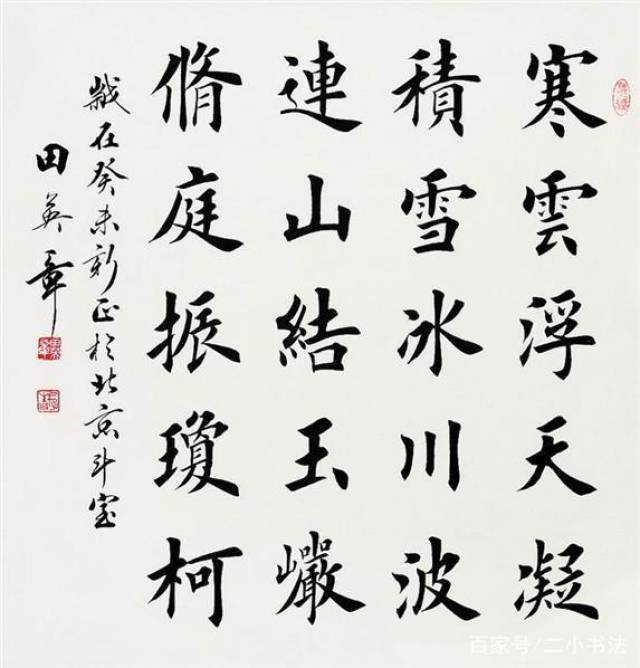 寒雲浮天凝
積雪冰川波
連山結玉巗
脩庭振瓊柯
歲在癸未新正於北京斗室
田英章
百家号/二小书法